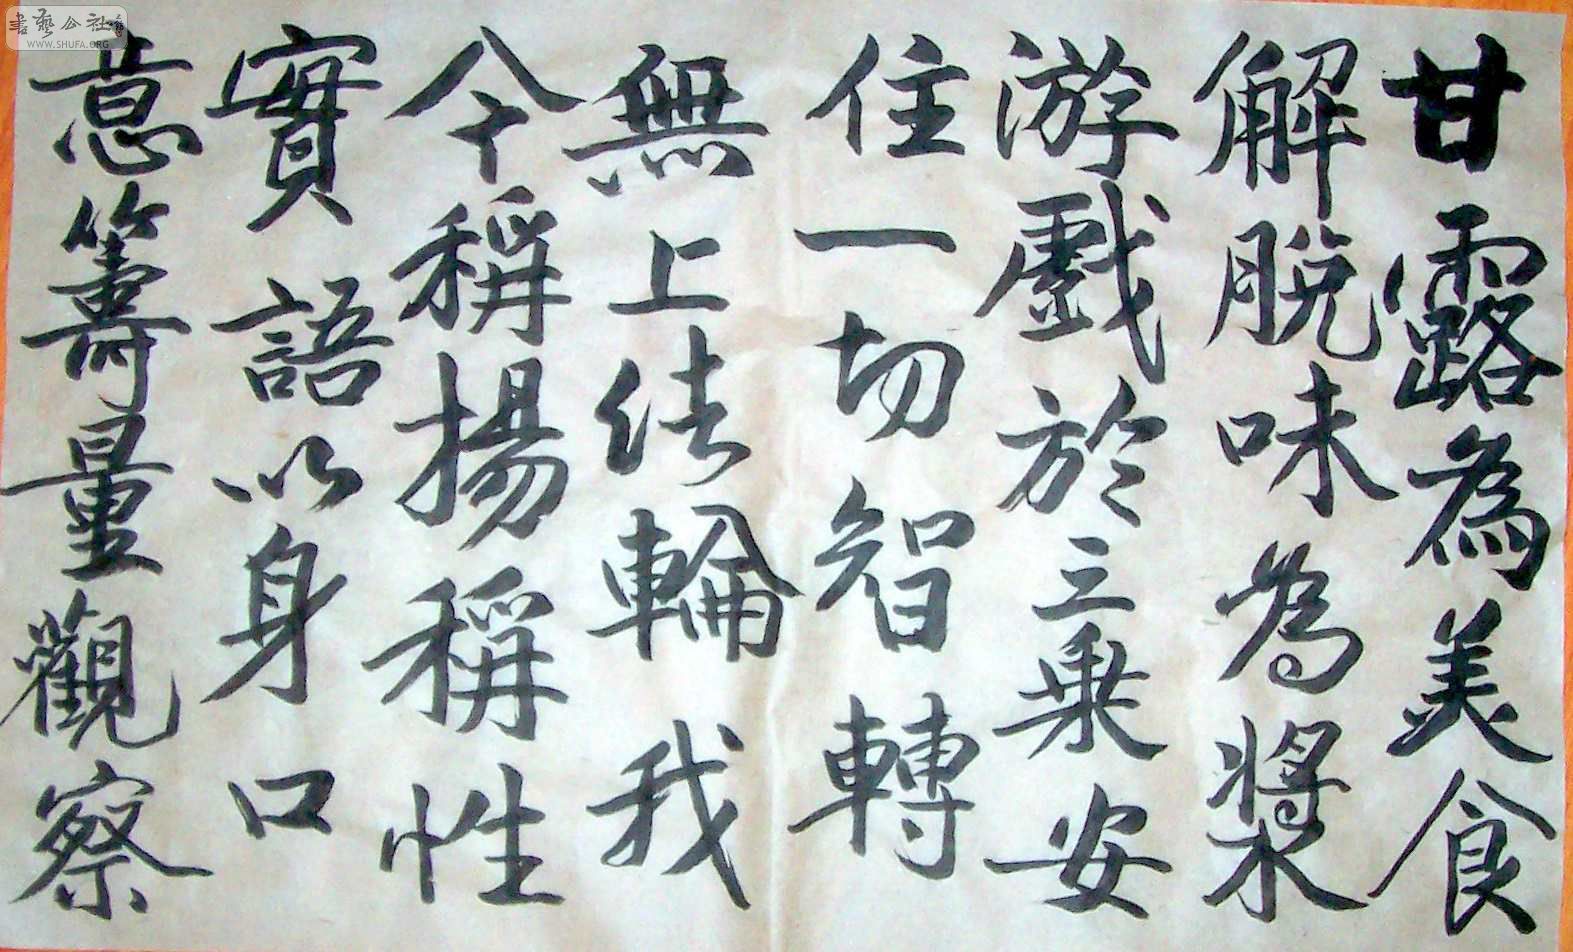 甘露為美食
解脫味為漿
游戲於三乘安
住一切智轉
無上結輪我
今稱揚稱性
實語以身口
意籌量觀察
書藝公社
WWW.SHUFA.ORG